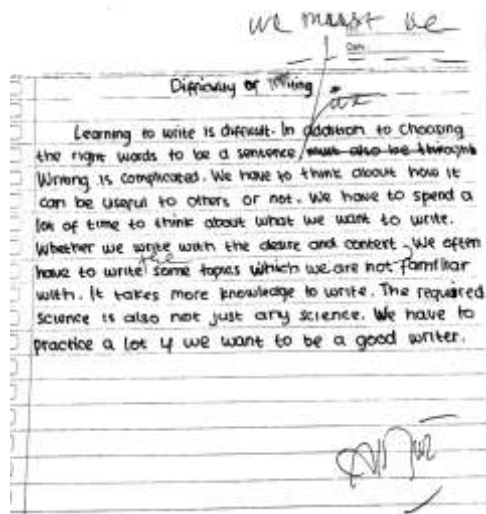 we must be
Date
Difficulty of Writing
in
Learning to write is difficult. In addition to choosing
the right words to be a sentence, must also be through
Writing is complicated. We have to think about how it
can be useful to others or not. We have to spend a
lot of time to think about what we want to write.
Whether we write with the desire and content, We often
have to write some topics which we are not familiar
with. It takes more knowledge to write. The required
science is also not just any science. We have to
practice a lot if we want to be a good writer.